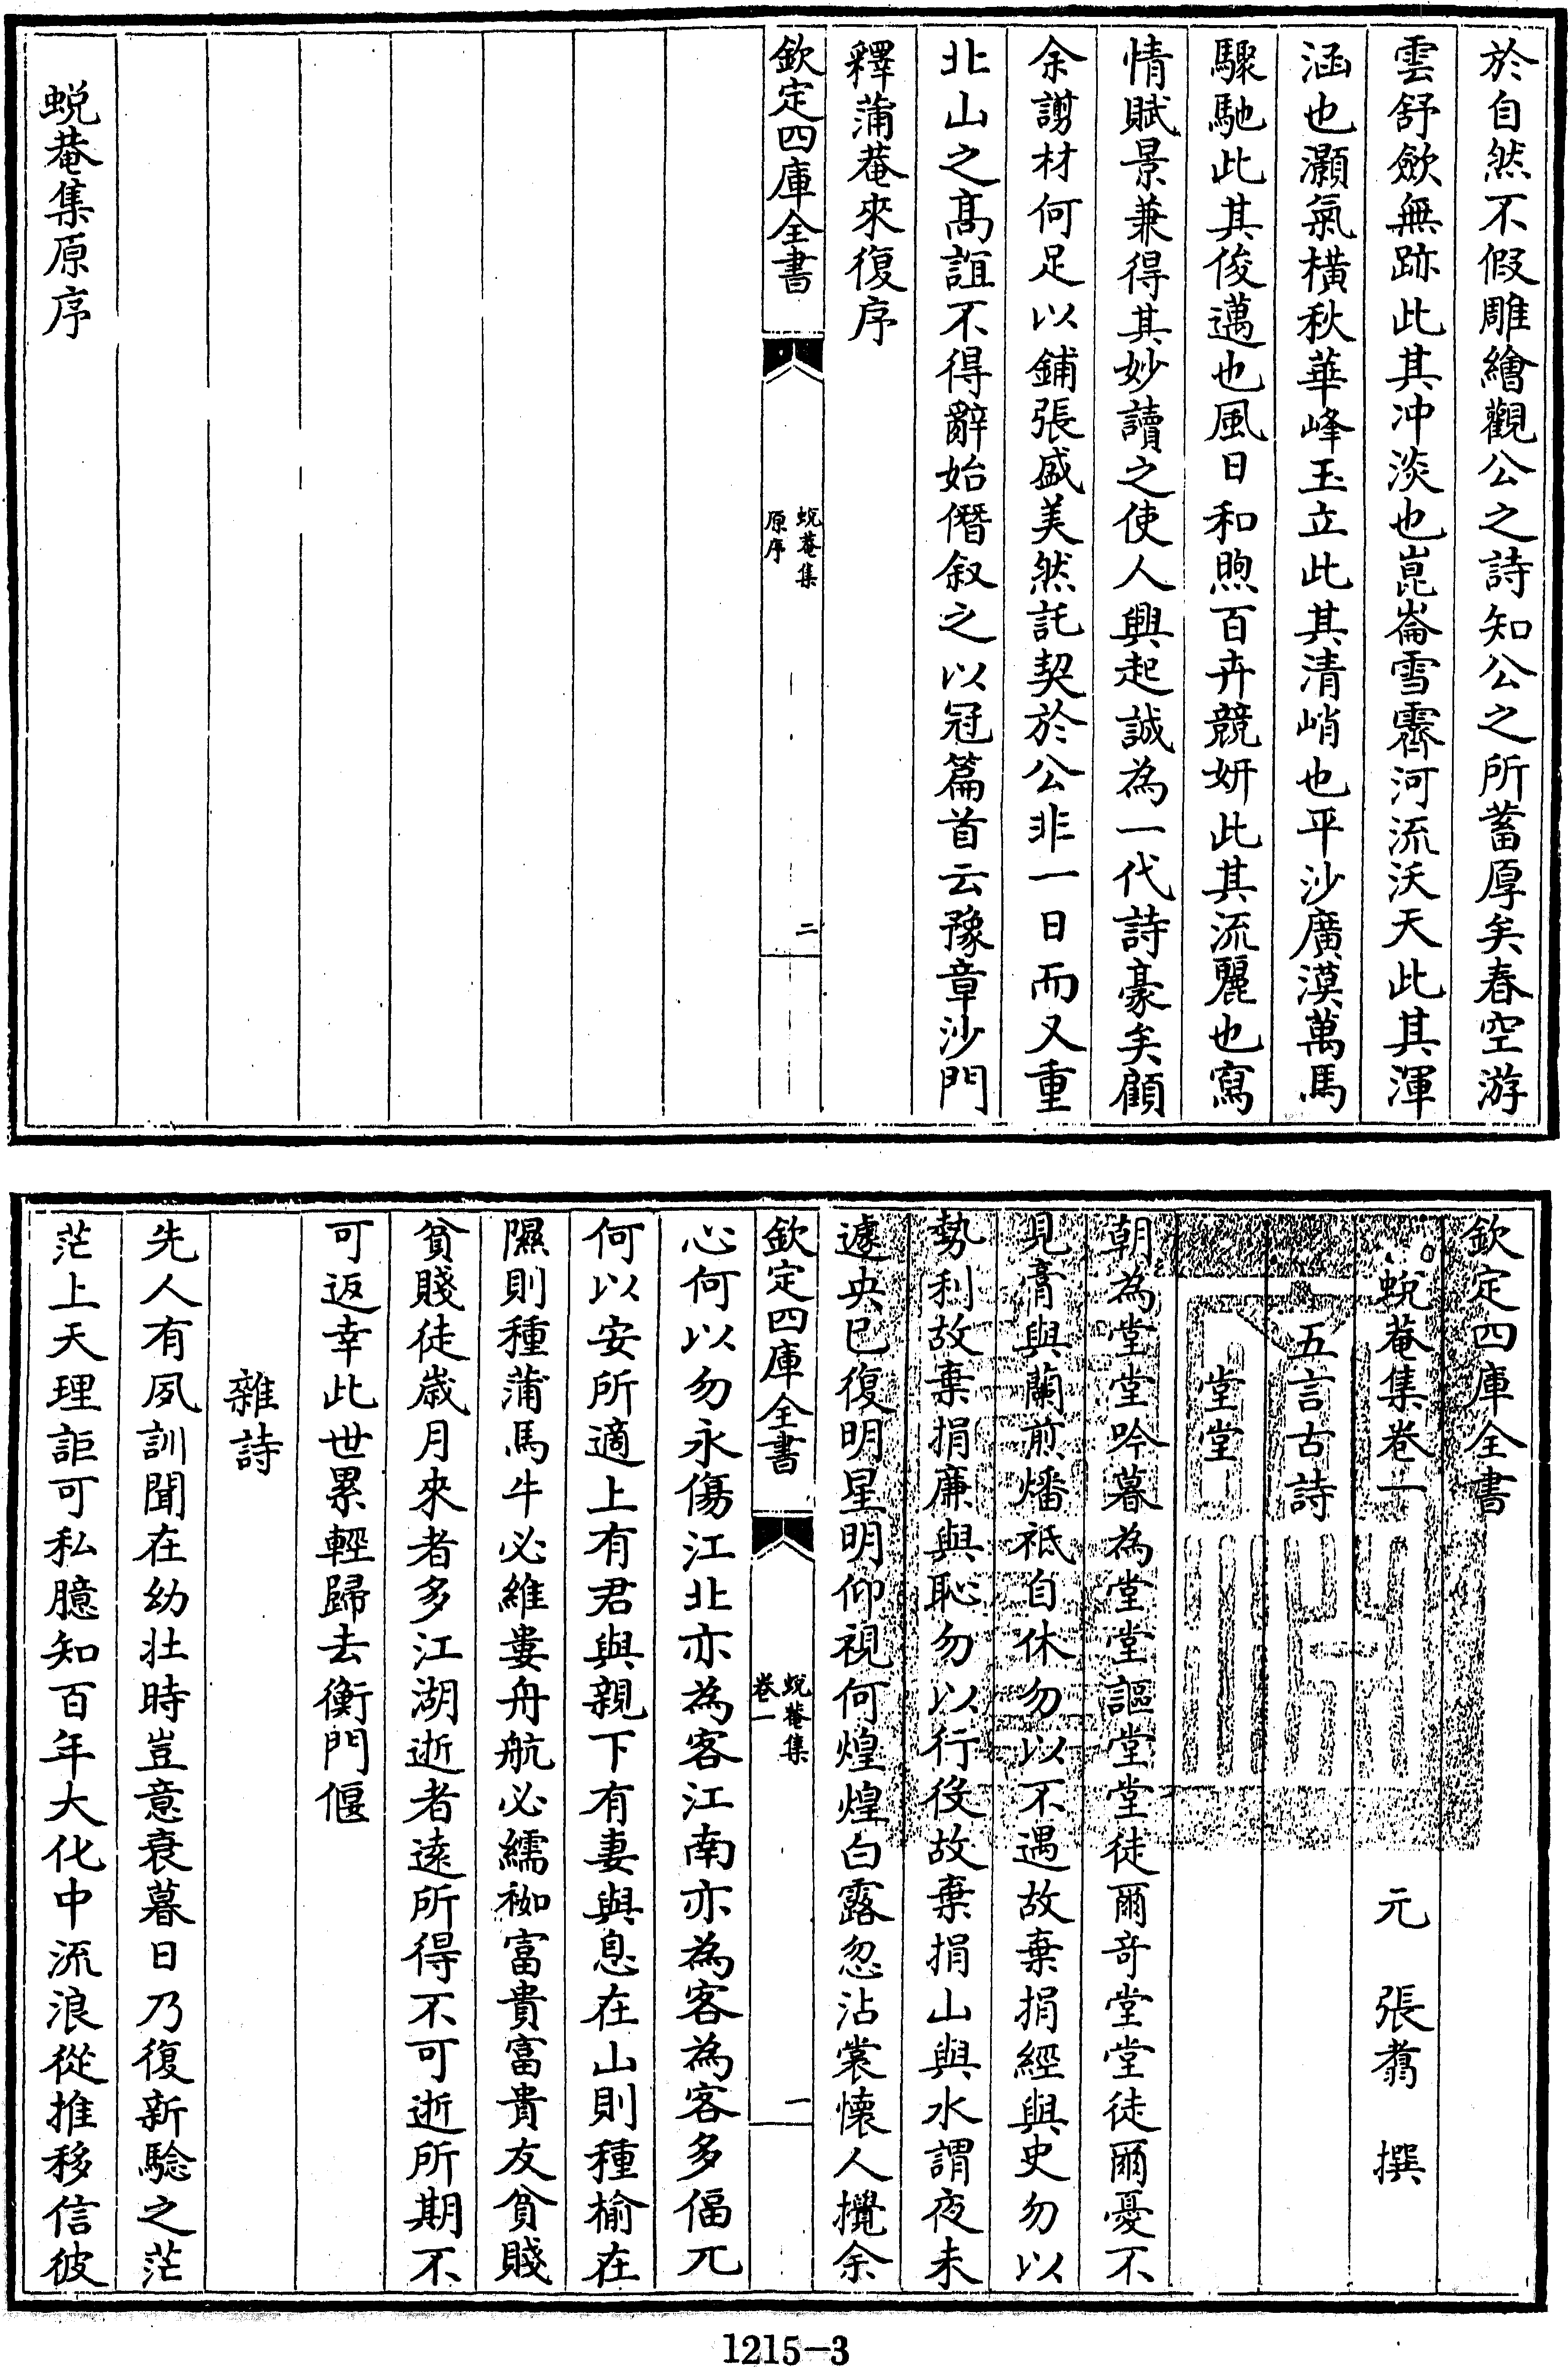 於自然不假雕繪觀公之詩知公之所蓄厚矣春空游
雲舒歛無跡此其冲淡也崑崙雪霽河流沃天此其渾
涵也灝氣橫秋華峰玉立此其清峭也平沙廣漠萬馬
驟馳此其俊邁也風日和煦百卉競妍此其流麗也寫
情賦景兼得其妙讀之使人興起誠為一代詩豪矣顧
余謭材何足以鋪張盛美然託契於公非一日而又重
北山之髙誼不得辭始僭叙之以冠篇首云豫章沙門
釋蒲菴來復序
欽定四庫全書
蛻菴集
原序
二
蛻菴集原序
欽定四庫全書
蛻菴集卷一
元 張翥 撰
五言古詩
堂堂
朝為堂堂吟暮為堂堂謳堂堂徒爾竒堂堂徒爾憂不
見膏與蘭煎燔祗自休勿以不遇故棄捐經與史勿以
勢利故棄捐廉與恥勿以行役故棄捐山與水謂夜未
遽央已復明星明仰視何煌煌白露忽沾裳懷人攪余
欽定四庫全書
蛻菴集
卷一
一
心何以勿永傷江北亦為客江南亦為客為客多偪兀
何以安所適上有君與親下有妻與息在山則種榆在
隰則種蒲馬牛必維婁舟航必繻袽富貴富貴友貧賤
貧賤徒嵗月來者多江湖逝者逺所得不可逝所期不
可返幸此世累輕歸去衡門偃
雜詩
先人有夙訓聞在幼壯時豈意衰暮日乃復新騐之茫
茫上天理詎可私臆知百年大化中流浪從推移信彼
1215-3